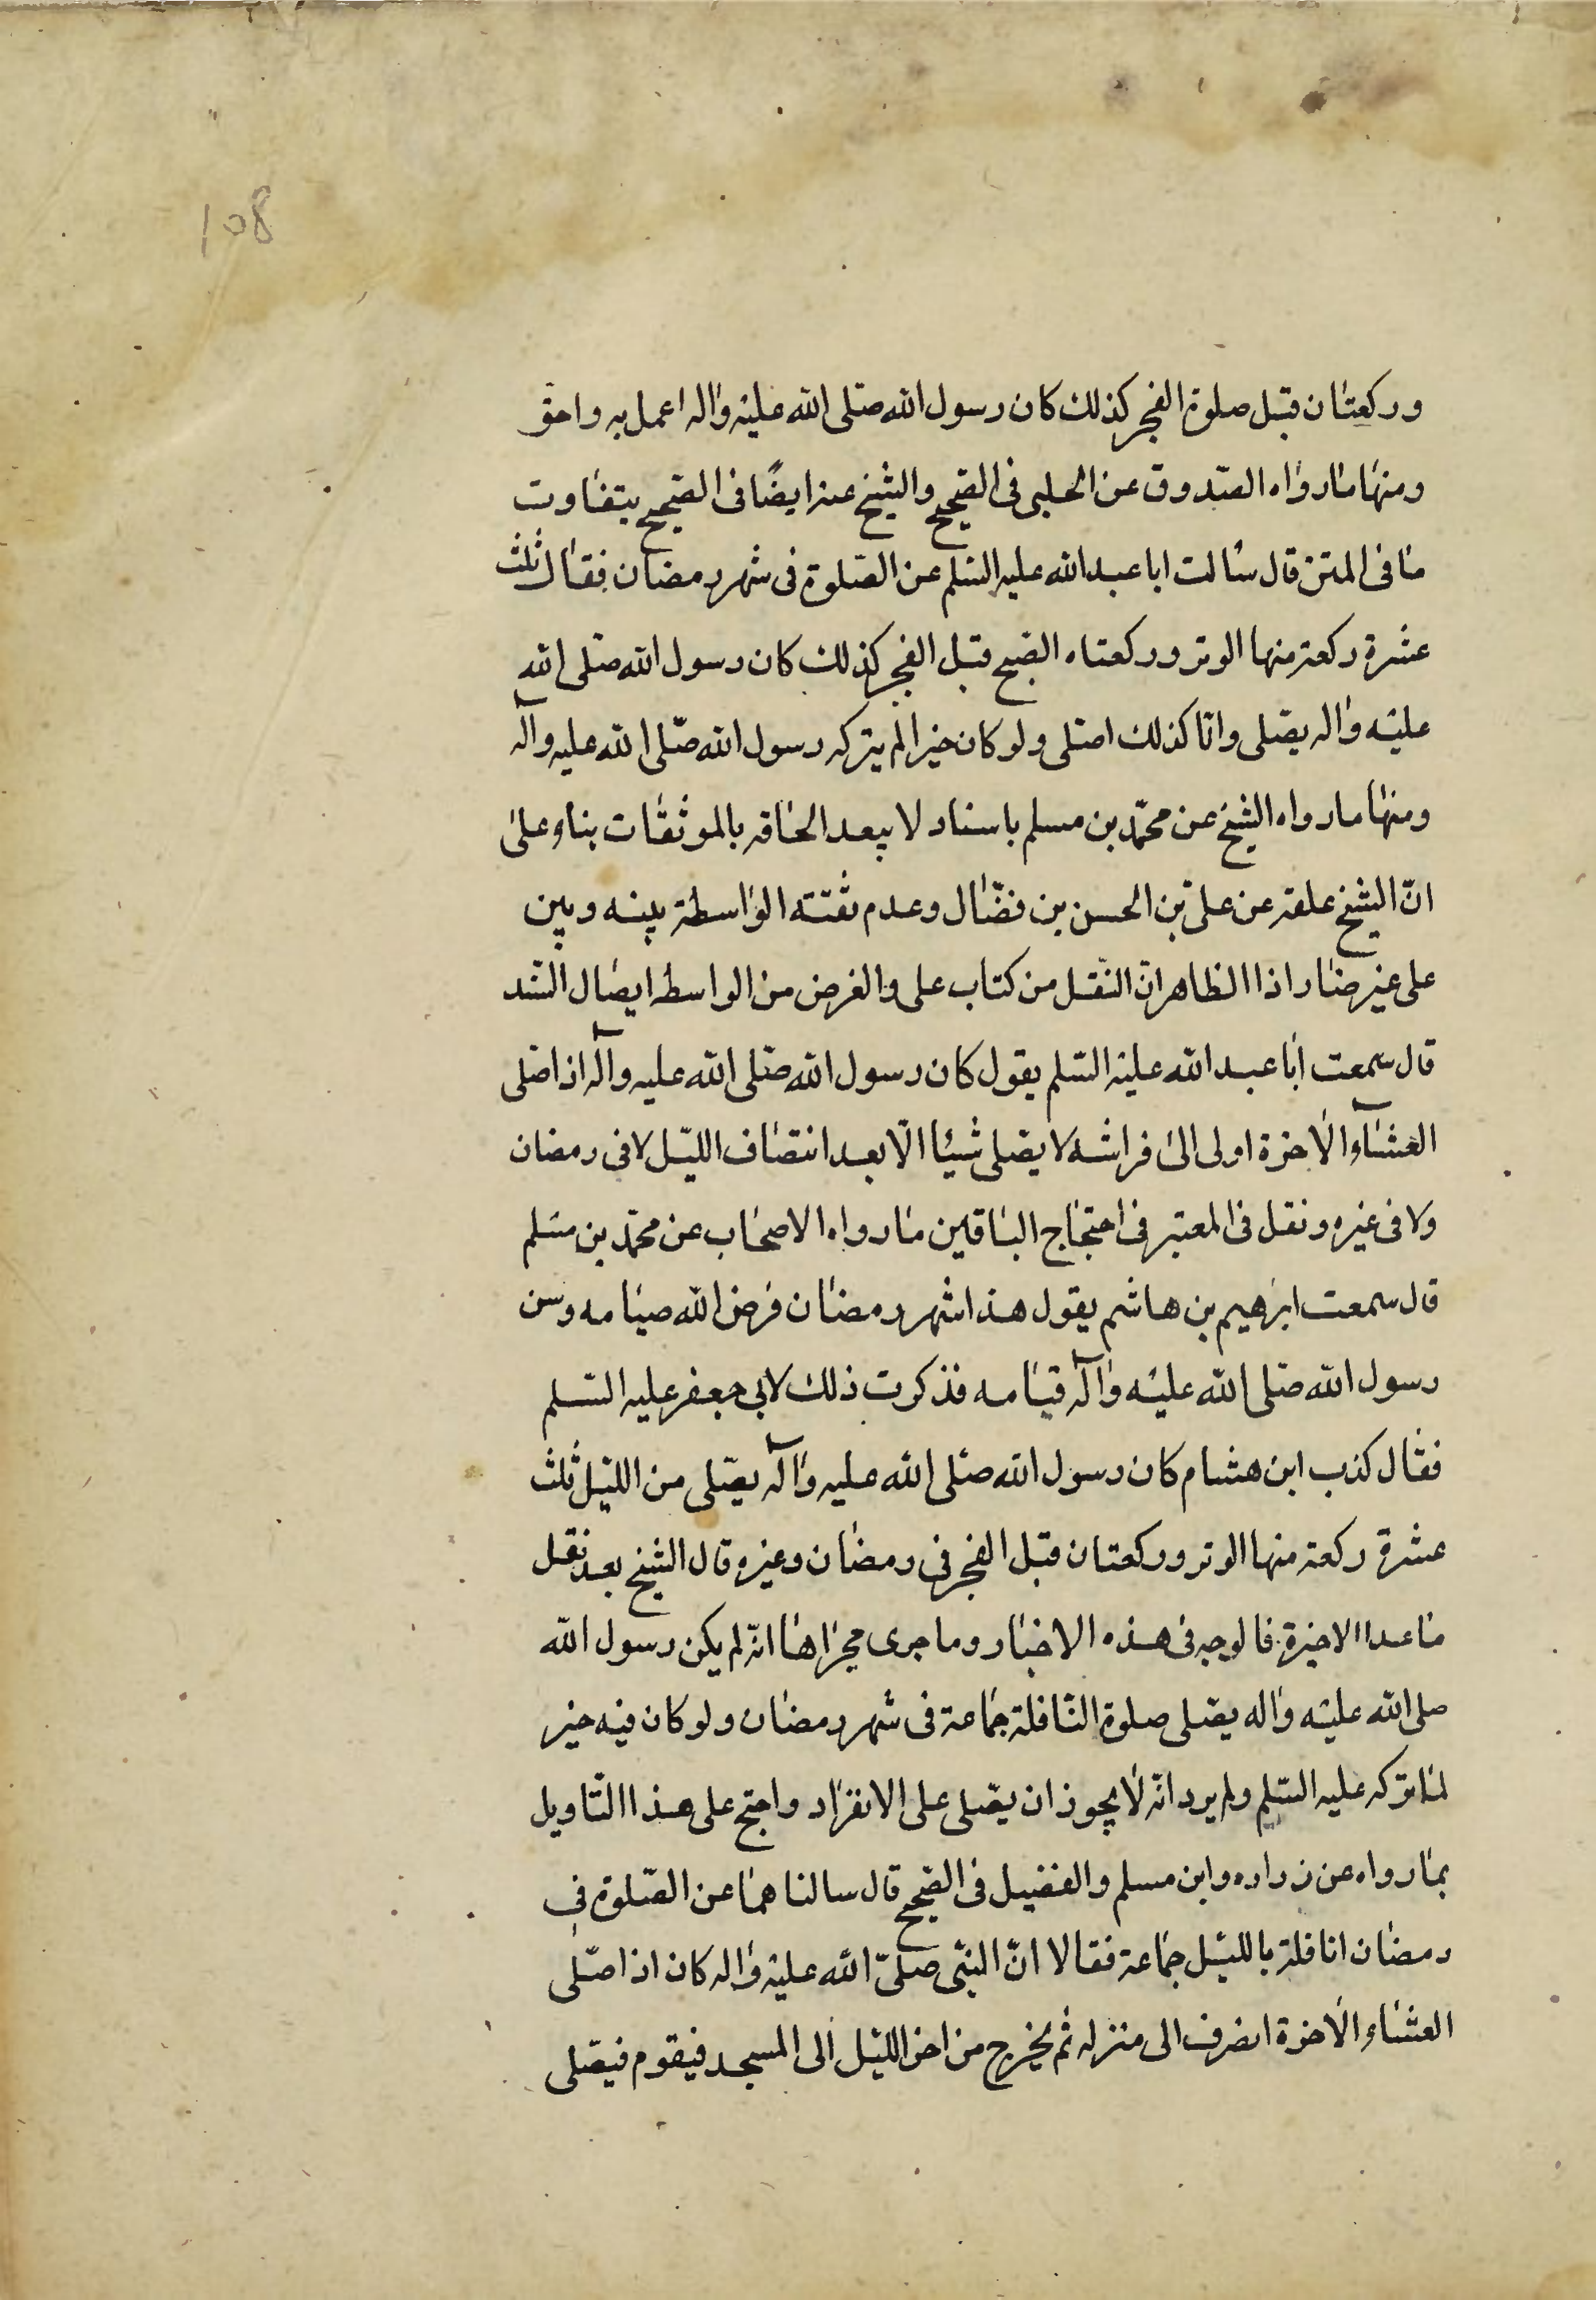 108
وركعتان قبل صلوة الفجر كذلك كان رسول الله صلى الله عليه واله اعمل به واحق
ومنها ما رواه الصدوق عن الحلبى فى الصحيح والشيخ عنه ايضًا فى الصحيح بتفاوت
ما فى المتن قال سالت ابا عبد الله عليه السلم عن الصلوة فى شهر رمضان فقال ثلث
عشرة ركعة منها الوتر وركعتاه الصبح قبل الفجر كذلك كان رسول الله صلى الله
عليه واله يصلى وانا كذلك اصلى ولو كان خيرا لم يتركه رسول الله صلّى الله عليه وآله
ومنها ما رواه الشيخ عن محمّد بن مسلم باسناد لا يبعد الحاقه بالموثقات بناء على
انّ الشيخ علقه عن علىّ بن الحسن بن فضّال وعدم ثقته الواسطة بينه وبين
على غير ضار اذا الظاهر انّ النقل من كتاب على والغرض من الواسطه ايصال السّند
قال سمعت ابا عبد الله عليه السّلم يقول كان رسول الله صلى الله عليه وآله اذا صلى
العشآء الاخرة اولى الى فراشه لا يصلى شيئا الّا بعد انتصاف الليّل لا فى رمضان
ولا فى غيره ونقل فى المعتبر فى احتجاج الباقين ما رواه الاصحاب عن محمّد بن مسلم
قال سمعت ابرهيم بن هاشم يقول هذا شهر رمضان فرض الله صيامه وسن
رسول الله صلى الله عليه وآله قيامه فذكرت ذلك لابى جعفر عليه السّلم
فقال كذب ابن هشام كان رسول الله صلى الله عليه وآله يصّلى من الليّل ثلث
عشرة ركعة منها الوتر وركعتان قبل الفجر فى رمضان وغيره قال الشيخ بعد نقل
ما عدا الاخيرة فالوجه فى هذه الاخبار وما جرى مجراها انّه لم يكن رسول الله
صلى الله عليه واله يصّلى صلوة النّافلة جماعة فى شهر رمضان ولو كان فيه خير
لما تركه عليه السّلم ولم يرد انّه لا يجوز ان يصّلى على الانفراد واحتج على هذا التّاويل
بما رواه عن زراره وابن مسلم والفضيل فى الصحيح قال سالناهما عن الصّلوة فى
رمضان انافلة بالليّل جماعة فقالا انّ النبّى صلىّ الله عليه واله كان اذا صلّى
العشاء الاخرة انصرف الى منزله ثم يخرج من اخر الليّل الى المسجد فيقوم فيصّلى